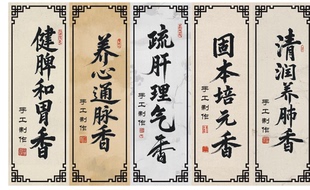 清润养肺香
手工制作
固本培元香
手工制作
疏肝理气香
手工制作
养心通脉香
手工制作
健脾和胃香
手工制作